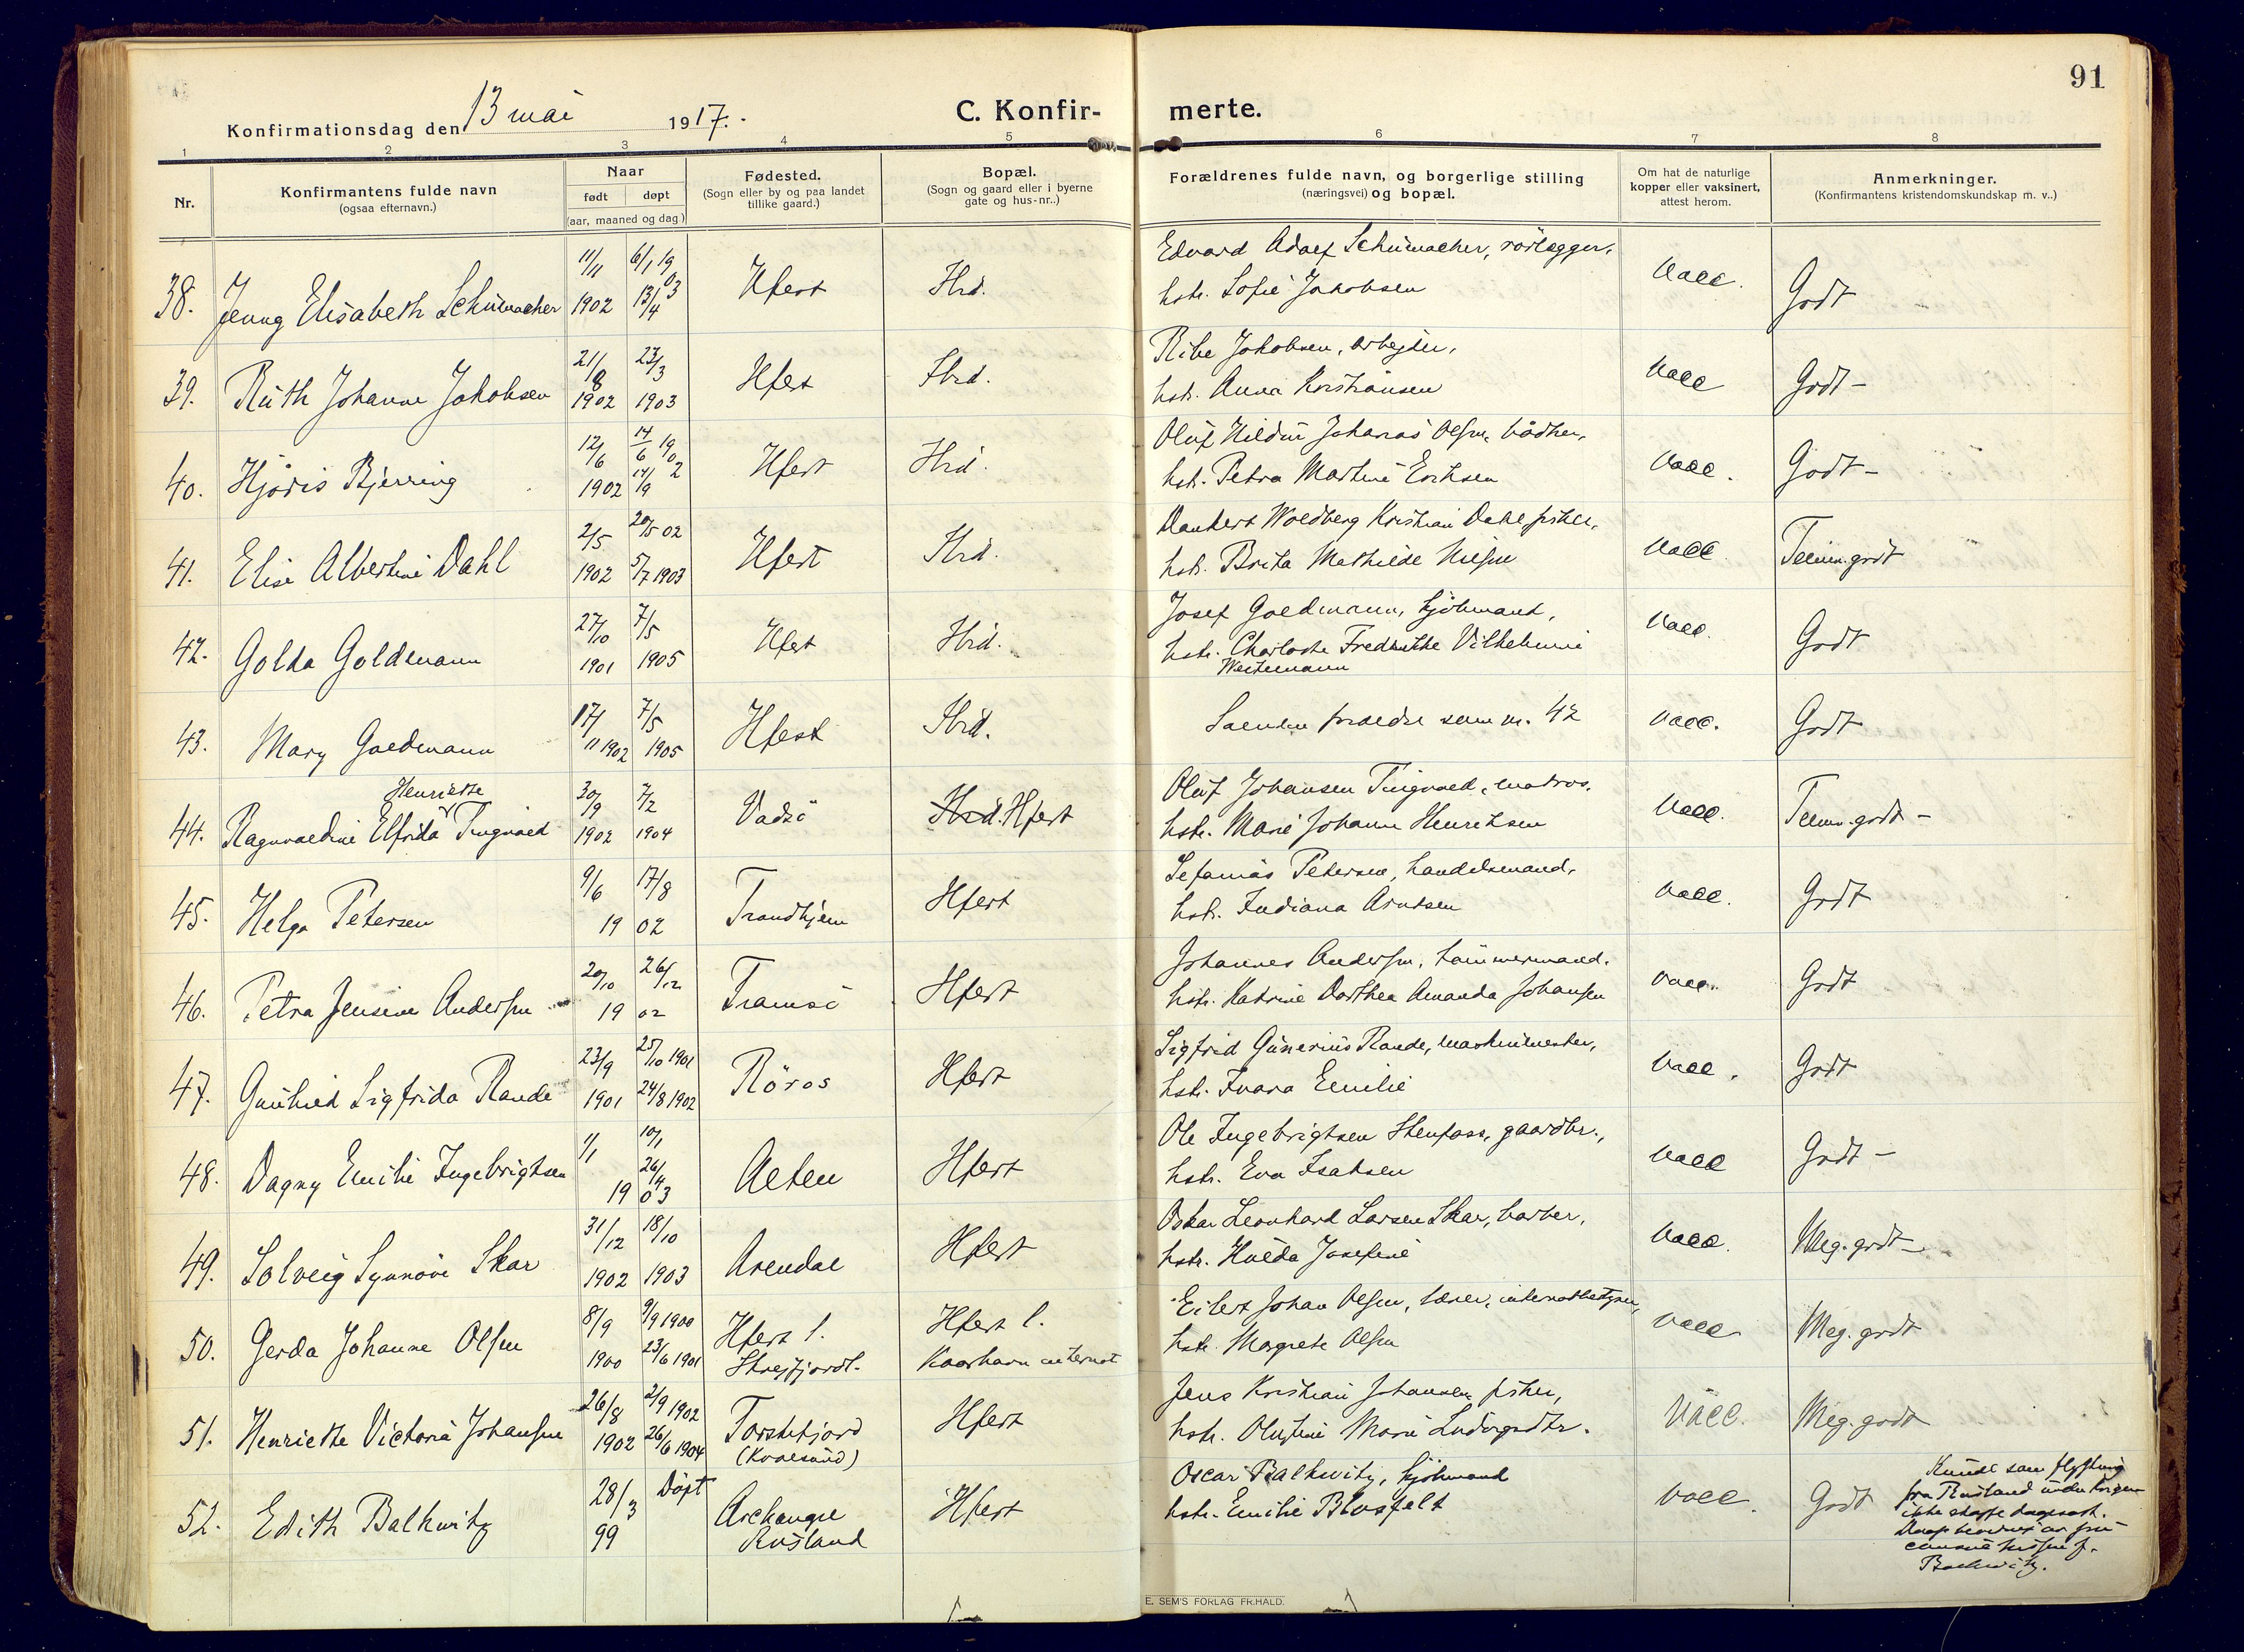 91
Konfirmationsdag den 13 mai 1917.
C. Konfir- merte.
1 2 3 4 5 6 7 8
Nr.
Konfirmantens fulde navn
(ogsaa efternavn.)
Naar
født døpt
(aar, maaned og dag.)
Fødested.
(Sogn eller by og paa landet
tillike gaard.)
Bopæl.
(Sogn og gaard eller i byerne
gate og hus-nr..)
Forældrenes fulde navn, og borgerlige stilling
(næringsvei) og bopæl.
Om hat de naturlige
kopper eller vaksinert,
attest herom.
Anmerkninger.
(Konfirmantens kristendomskundskap m. v..)
38. Jenny Elisabeth Schumacher 11/11 1902 6/1 1903 13/4 Hfest Hrd.
Edvard Adolf Schumacher, rörlegger,
hstr. Sofie Jakobsen
Vacc. Godt
39. Ruth Johanne Jakobsen 21/8 1902 23/3 1903 Hfest Hrd.
Ribe Jakobsen, arbejder,
hstr. Anna Kristiansen
Vacc Godt -
40. Hjördis Bjerring 12/6 1902 14/6 1902 Hfest Hrd.
Oluf Hildur Johanas Olsen, bødker,
hstr. Petra Martine Eriksen
Vacc. Godt -
41. Elise Albertine Dahl 2/5 1902 20/5 02 5/7 1903 Hfest Hrd.
Dankert Woldberg Kristian Dahl, fisker,
hstr. Brita Mathilde Nilsen
Vacc Temm. godt
42. Golda Goldmann 27/10 1901 7/5 1905 Hfest Hrd.
Josef Goldmann, sjömand,
hstr. Charlotte Fredrikke Vilhelmine
Westermann
Vacc. Godt
43. Mary Goldmann 17/11 1902 7/5 1905 Hfest Hrd.
Samme forældre som nr. 42
Vacc. Godt
Henriette
44. Ragnvaldine Elfrida Tingvold 30/9 1902 7/2 1904 Vadsö Hrd. Hfest
Oluf Johansen Tingvold, matros,
hstr. Marie Johanne Henriksen
Vacc. Temm. godt -
45. Helga Petersen 9/6 17/8 1902 Trondhjem Hfest
Sefanias Petersen, handelsmand,
hstr. Indiana Arntsen
Vacc. Godt
46. Petra Jensine Andersen 20/10 26/12 1902 Tromsö Hfest
Johannes Andersen, tømmermand,
hstr. Katrine Dorthea Amanda Johansen
Vacc. Godt
47. Gunhild Sigfrida Rande 23/9 1901 25/10 1901 24/8 1902 Röros Hfest
Sigfrid Gunerius Rande, maskinmester,
hstr. Ivara Emilie
Vacc. Godt
48. Dagny Emilie Ingebrigtsen 1/1 10/1 26/4 1903 Alten Hfest
Ole Ingebrigtsen Stenfoss, gaardbr.,
hstr. Eva Isaksen
Vacc Godt -
49. Solveig Synnöve Skar 31/12 1902 18/10 1903 Arendal Hfest
Oskar Leonhard Larsen Skar, barber,
hstr. Hulda Josefine
Vacc. Meg. godt -
50. Gerda Johanne Olsen 8/9 1900 9/9 1900 23/6 1901 Hfest l. Hfest l.
Eilert Johan Olsen, lærer, internatbestyrer,
hstr. Margrete Olsen
Vacc Meg. godt
51. Henriette Victoria Johansen 26/8 1902 2/9 1902 26/6 1904 Torskefjord
(Kvalsund) Hfest
Jens Kristian Johansen, fisker,
hstr. Olufine Marie Ludvigsdtr.
Vacc. Meg. godt
52. Edith Balkwitz 28/3 99 Döpt Archangel
Rusland Hfest
Oscar Balkwitz, sjömand
hstr. Emilie Blosfelt
Vacc. Godt
Kunde som flyktning
fra Rusland under krigen
ikke skaffe daapsatt.
Balkwitz.
E. SEM'S FORLAG FR.HALD.